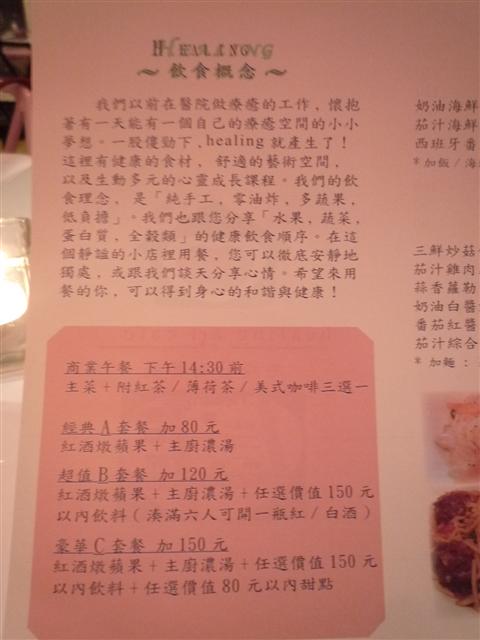 HEALING
～飲食概念～
我們以前在醫院做療癒的工作，懷抱
著有一天能有一個自己的療癒空間的小小
夢想。一股傻勁下，healing 就產生了！
這裡有健康的食材，舒適的藝術空間，
以及生動多元的心靈成長課程。我們的飲
食理念，是「純手工，零油炸，多蔬果，
低負擔」。我們也跟您分享「水果，蔬菜，
蛋白質，全穀類」的健康飲食順序。在這
個靜謐的小店裡用餐，您可以徹底安靜地
獨處，或跟我們談天分享心情。希望來用
餐的你，可以得到身心的和諧與健康！
商業午餐 下午14:30前
主菜+附紅茶/薄荷茶/美式咖啡三選一
經典A套餐 加80元
紅酒燉蘋果+主廚濃湯
超值B套餐 加120元
紅酒燉蘋果+主廚濃湯+任選價值150元
以內飲料（湊滿六人可開一瓶紅/白酒）
豪華C套餐 加150元
紅酒燉蘋果+主廚濃湯+任選價值150元
以內飲料+任選價值80元以內甜點
奶油海鮮
茄汁海鮮
西班牙番
*加飯/海
三鮮炒菇
茄汁雞肉
蒜香蘿勒
奶油白醬
番茄紅醬
茄汁綜合
*加麵：